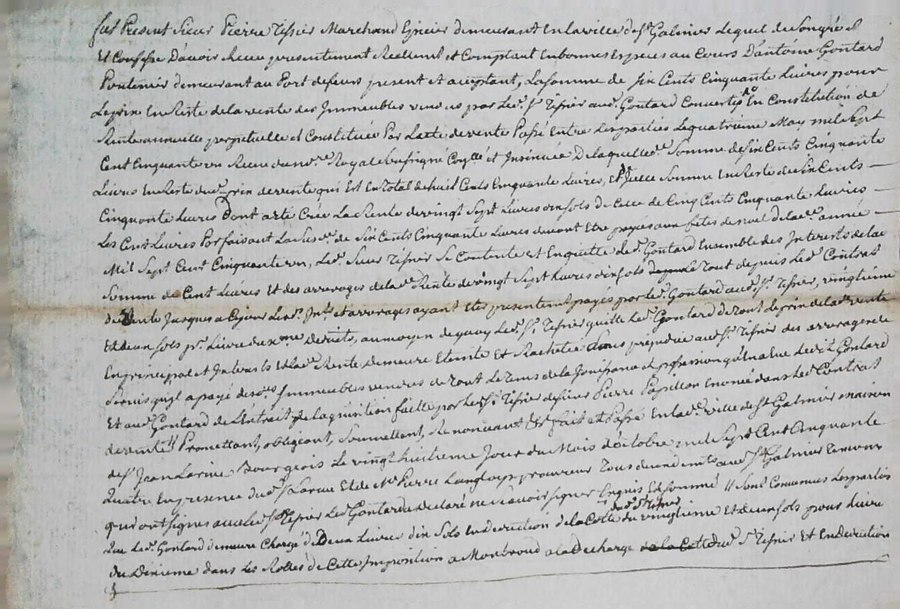 fut Present Sieur Pierre Tissier Marchand Epicier demeurant en la ville de St Galmier Lequel de Son gré
Et Confesse D'avoir Receu presentement Reellement et Comptant en bonnes Especes au Cours D'antoine Gontard
demeurant au Port present et acceptant, La somme de Six Cents Cinquante Livres pour
Le prix En Reste de la vente des Immeubles vendus par Led. Sr Tissier aud. Gontard Convertie En Constitution de
Rente annuelle perpetuelle et Constituée Par L'acte de vente Passé Entre Les parties Le quatrieme May mil Sept
Cent Cinquante un Receu du no.re Royal Soussigné et Insinuée De laquelle Somme de Six Cents Cinquante
Livres En Reste du prix de vente qui Est En Total de huit Cents Cinquante Livres, Et Icelle Somme En Reste de Six Cents
Cinquante Livres Dont a été Créé La Rente de vingt Sept Livres dix sols De Celle de Cinq Cents Cinquante Livres
Les Cent Livres Parfaisant La de Six Cents Cinquante Livres devant Etre payées aux fetes de noel de la année
Mil Sept Cent Cinquante un, Led. Sieur Tissier Se Contente et En quitte Led. Gontard Ensemble des Interets de la
Somme de Cent Livres Et des arrerages de la Rente de vingt Sept Livres dix sols Le Tout depuis Led. Contrat
de vente Jusques a Ce jour Lesd. et arrerages ayant Eté presentement payés par Led. Gontard aud. Sr Tissier, vingtieme
Et deux sols pr. Livre du dixme deduits, au moyen de quoy Led. Sr Tissier quitte Led. Gontard de Tout Le prix de lad. vente
En principal et Interets Et Lad. Rente demeure Eteinte Et Rachetée Sans prejudice aud. Sr Tissier des arrerages de
a payé Immeubles vendues de Tout Le Tems de la Jouissance et possession qu'il En a Eue Led. Gontard
Et aud. Gontard de L'Extrait de L'aquisition faitte par Led. Sr Tissier de Sieur Pierre Papillon Enoncée dans Led. Contrat
de vente Promettant, obligeant, Soumettant, Renonceant Fait et Passé En lad. ville de St Galmier maison
de Sr Jean Larue Bourgeois Le vingt huitieme Jour du Mois d'octobre mil Sept Cent Cinquante
Quatre En presence dud. Sr Larue Et de Me Pierre Langlois procureur Tous deux demts. aud. St Galmier Temoins
qui ont signés avec Led. Sr Tissier Led. Gontard a declaré ne Scavoir signer Enquis Et Sommé // Sont Convenues Les parties
dud. Sr Tissier
Que Led. Gontard demeure Chargé de Deux Livres dix Sols En de la Cotte du vingtieme Et deux sols pour Livre
du Dixieme dans Les Rolles de Cette Imposition a Montroud a la Decharge dud. Sr Tissier Et En